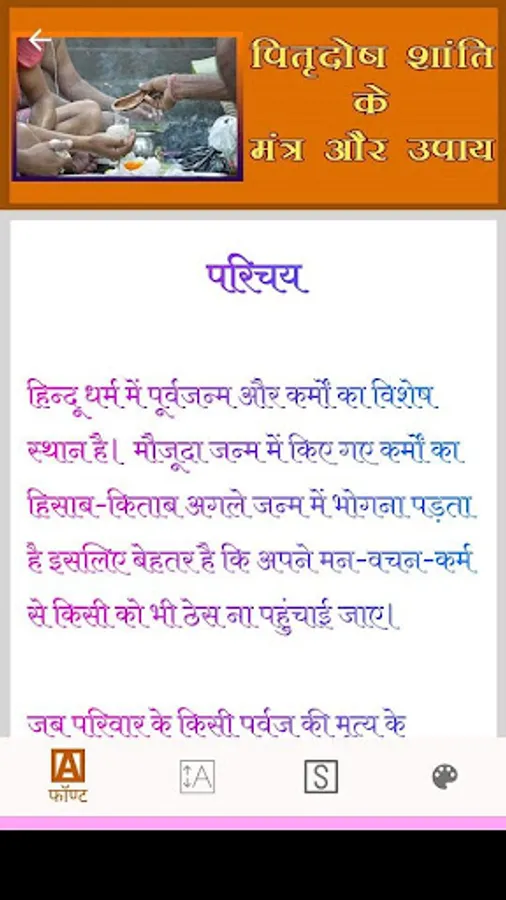 पितृदोष शांति
के
मंत्र और उपाय
परिचय
हिन्दू धर्म में पूर्वजन्म और कर्मों का विशेष
स्थान है। मौजूदा जन्म में किए गए कर्मों का
हिसाब-किताब अगले जन्म में भोगना पड़ता
है इसलिए बेहतर है कि अपने मन-वचन-कर्म
से किसी को भी ठेस ना पहुंचाई जाए।
जब परिवार के किसी पूर्वज की मृत्यु के
A
फॉण्ट
A
S